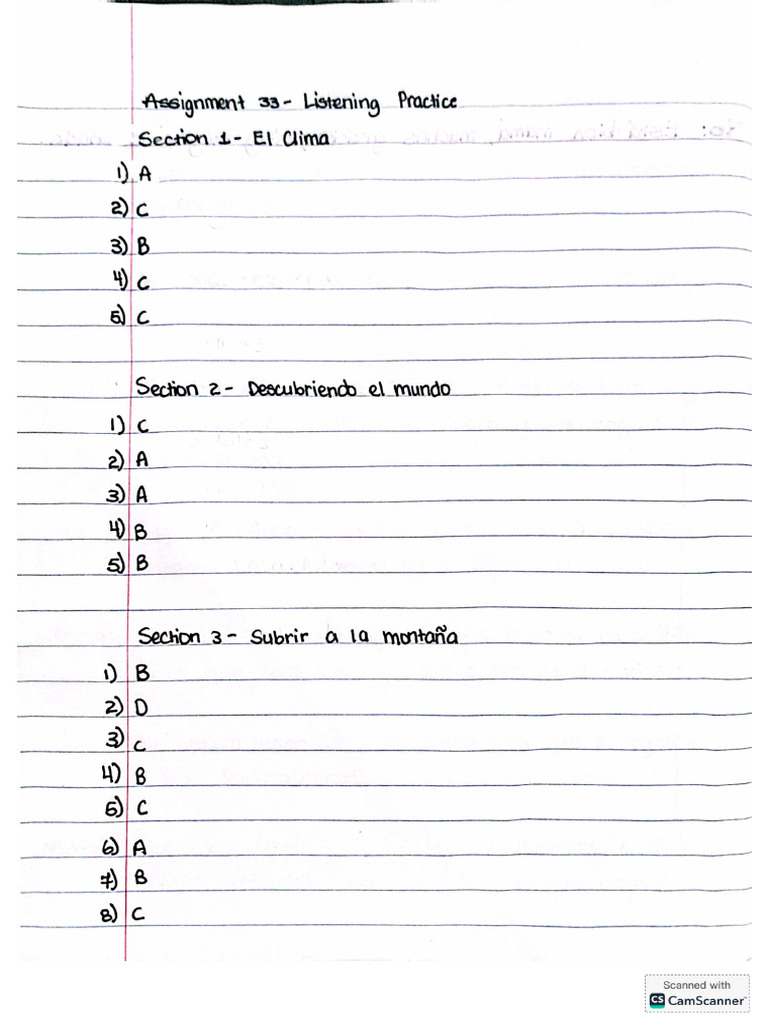 Assignment 33 - Listening Practice
Section 1 - El Clima
1) A
2) C
3) B
4) C
5) C
Section 2 - Descubriendo el mundo
1) C
2) A
3) A
4) B
5) B
Section 3 - Subrir a la montaña
1) B
2) D
3) C
4) B
5) C
6) A
7) B
8) C
Scanned with
CS CamScanner